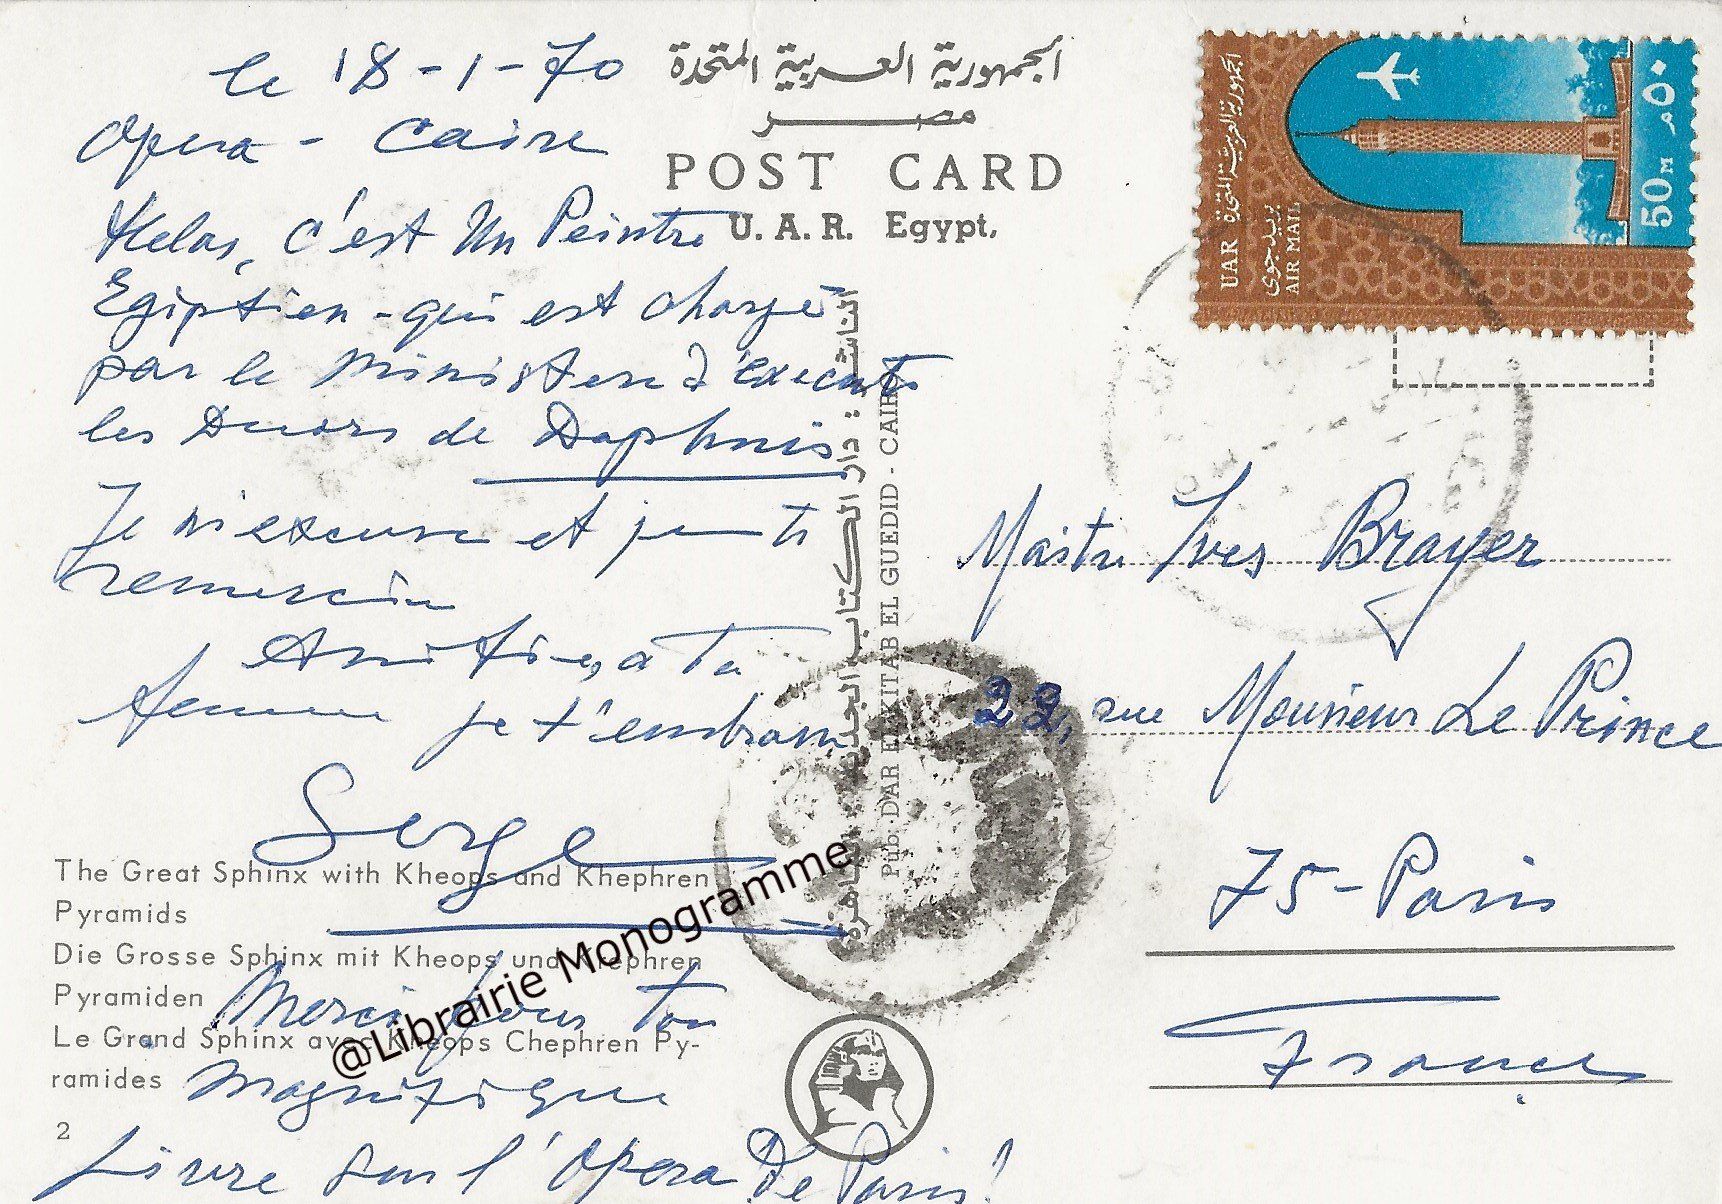 le 18-1-70
Opera - Caire
Helas, c'est Un Peintre
Egiptien - qui est chargé
par le Ministere d'executer
les Decors de Daphnis
Je m'excuse et je te
remercie
Amitiés, a Ta
femme je t'embrasse
Serge
Merci pour ton
Magnifique
Livre sur l'Opera De Paris!
الجمهورية العربية المتحدة
مصر
POST CARD
U. A. R. Egypt.
الناشر : دار الكتاب الجديد القاهرة
Pub: DAR EL KITAB EL GUEDID - CAIRO
The Great Sphinx with Kheops and Khephren
Pyramids
Die Grosse Sphinx mit Kheops und Khephren
Pyramiden
Le Grand Sphinx avec Kheops Chephren Py-
ramides
2
@Librairie Monogramme
الجمهورية العربية المتحدة
UAR
بريد جوى
AIR MAIL
٥٠م
50 M
Maitre Yves Brayer
22, rue Monsieur Le Prince
75 - Paris
France